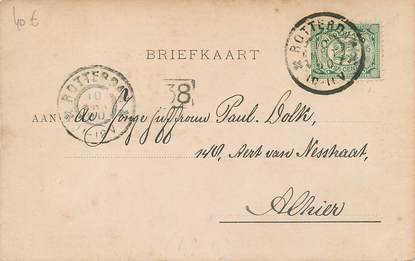 40 €
BRIEFKAART
ROTTERDAM
10-11V
ROTTERDAM
10
38
AAN de Jonge juffrouw Paul. Dolk,
140, Aert van Nesstraat,
Alhier